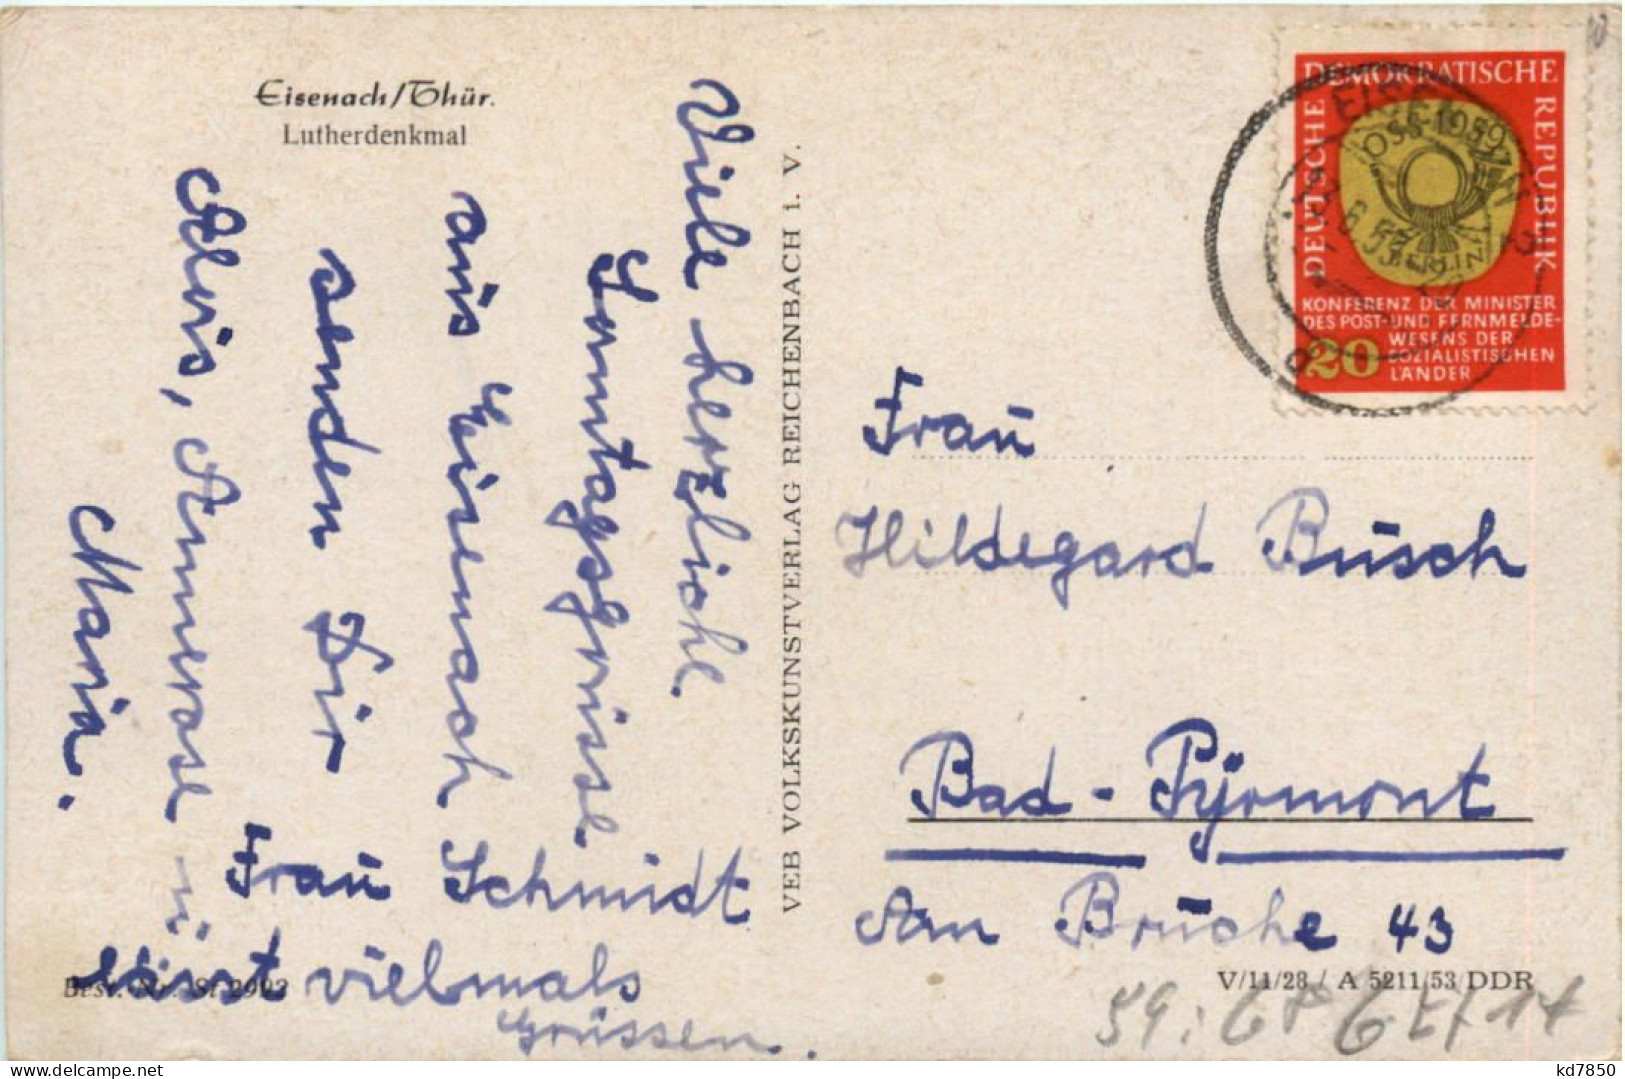 Eisenach/Thür.
Lutherdenkmal
Viele herzliche
Sonntagsgrüsse
aus Eisenach
senden Dir
Alois, Annerose u
Maria.
Frau Schmidt
lässt vielmals
Grüssen.
Best.-Nr. Sf 2992
VEB VOLKSKUNSTVERLAG REICHENBACH i. V.
DEUTSCHE DEMOKRATISCHE REPUBLIK
OSS-1959
BERLIN
KONFERENZ DER MINISTER
DES POST-UND FERNMELDE-
WESENS DER
SOZIALISTISCHEN
LÄNDER
20
Frau
Hildegard Busch
Bad-Pyrmont
Am Bruche 43
V/11/28 / A 5211/53 DDR
kd7850